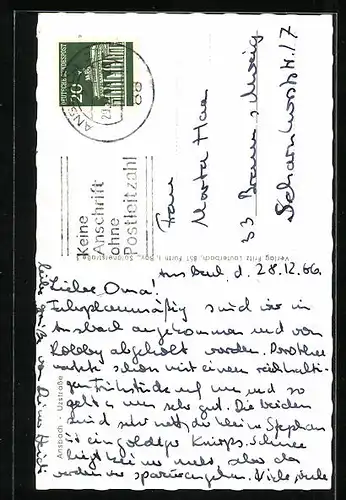 DEUTSCHE BUNDESPOST
20
ANSBACH
88
Keine
Anschrift
ohne
Postleitzahl
Frau
Marta Haase
33 Braunschweig
Scharnhorststr. 17
Verlag Fritz Lauterbach, 851 Fürth i. Bay.,
Ansbach - Uzstraße
Ansbach, d. 28.12.66.
Liebe Oma!
Fahrplanmäßig sind wir in
Ansbach angekommen und von
abgeholt worden. Dorothee
wartete schon mit einem reichhalti-
gen Frühstück auf uns, und so
geht es uns sehr gut. Die beiden
sind sehr nett, der kleine Stephan
ist ein goldiger Knirps. Schnee
liegt keiner mehr, aber da
werden wir spazierengehen. Viele, viele
liebe Grüße von Deiner